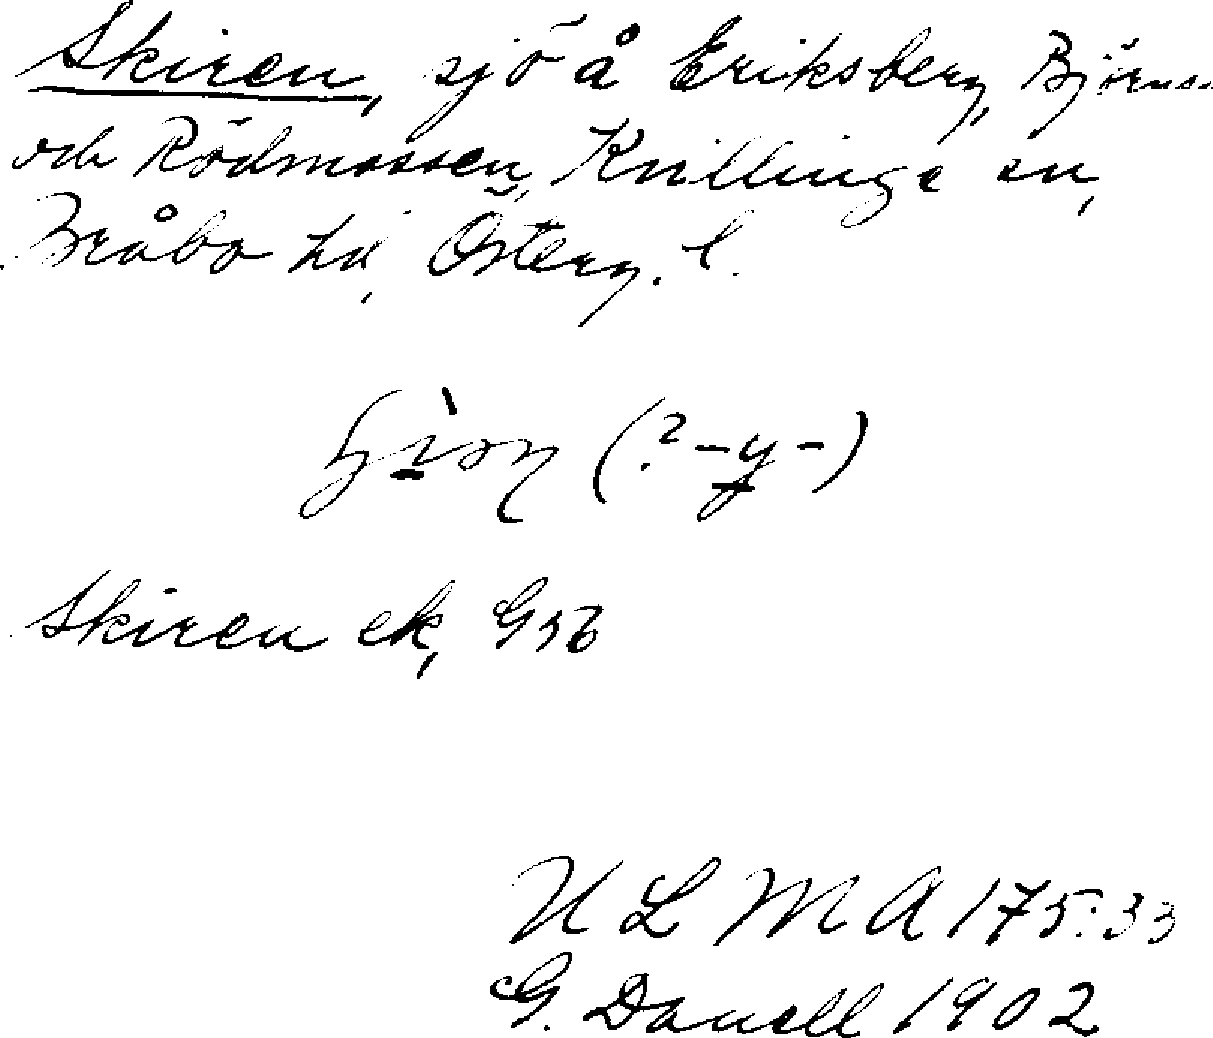 Skiren, sjö å Eriksberg, Björns-
och Rödmossen, Kvillinge sn,
Bråbo hd, Österg. l.
(? -y-)
Skiren ek, Gsb
ULMA 175:33
G. Danell 1902